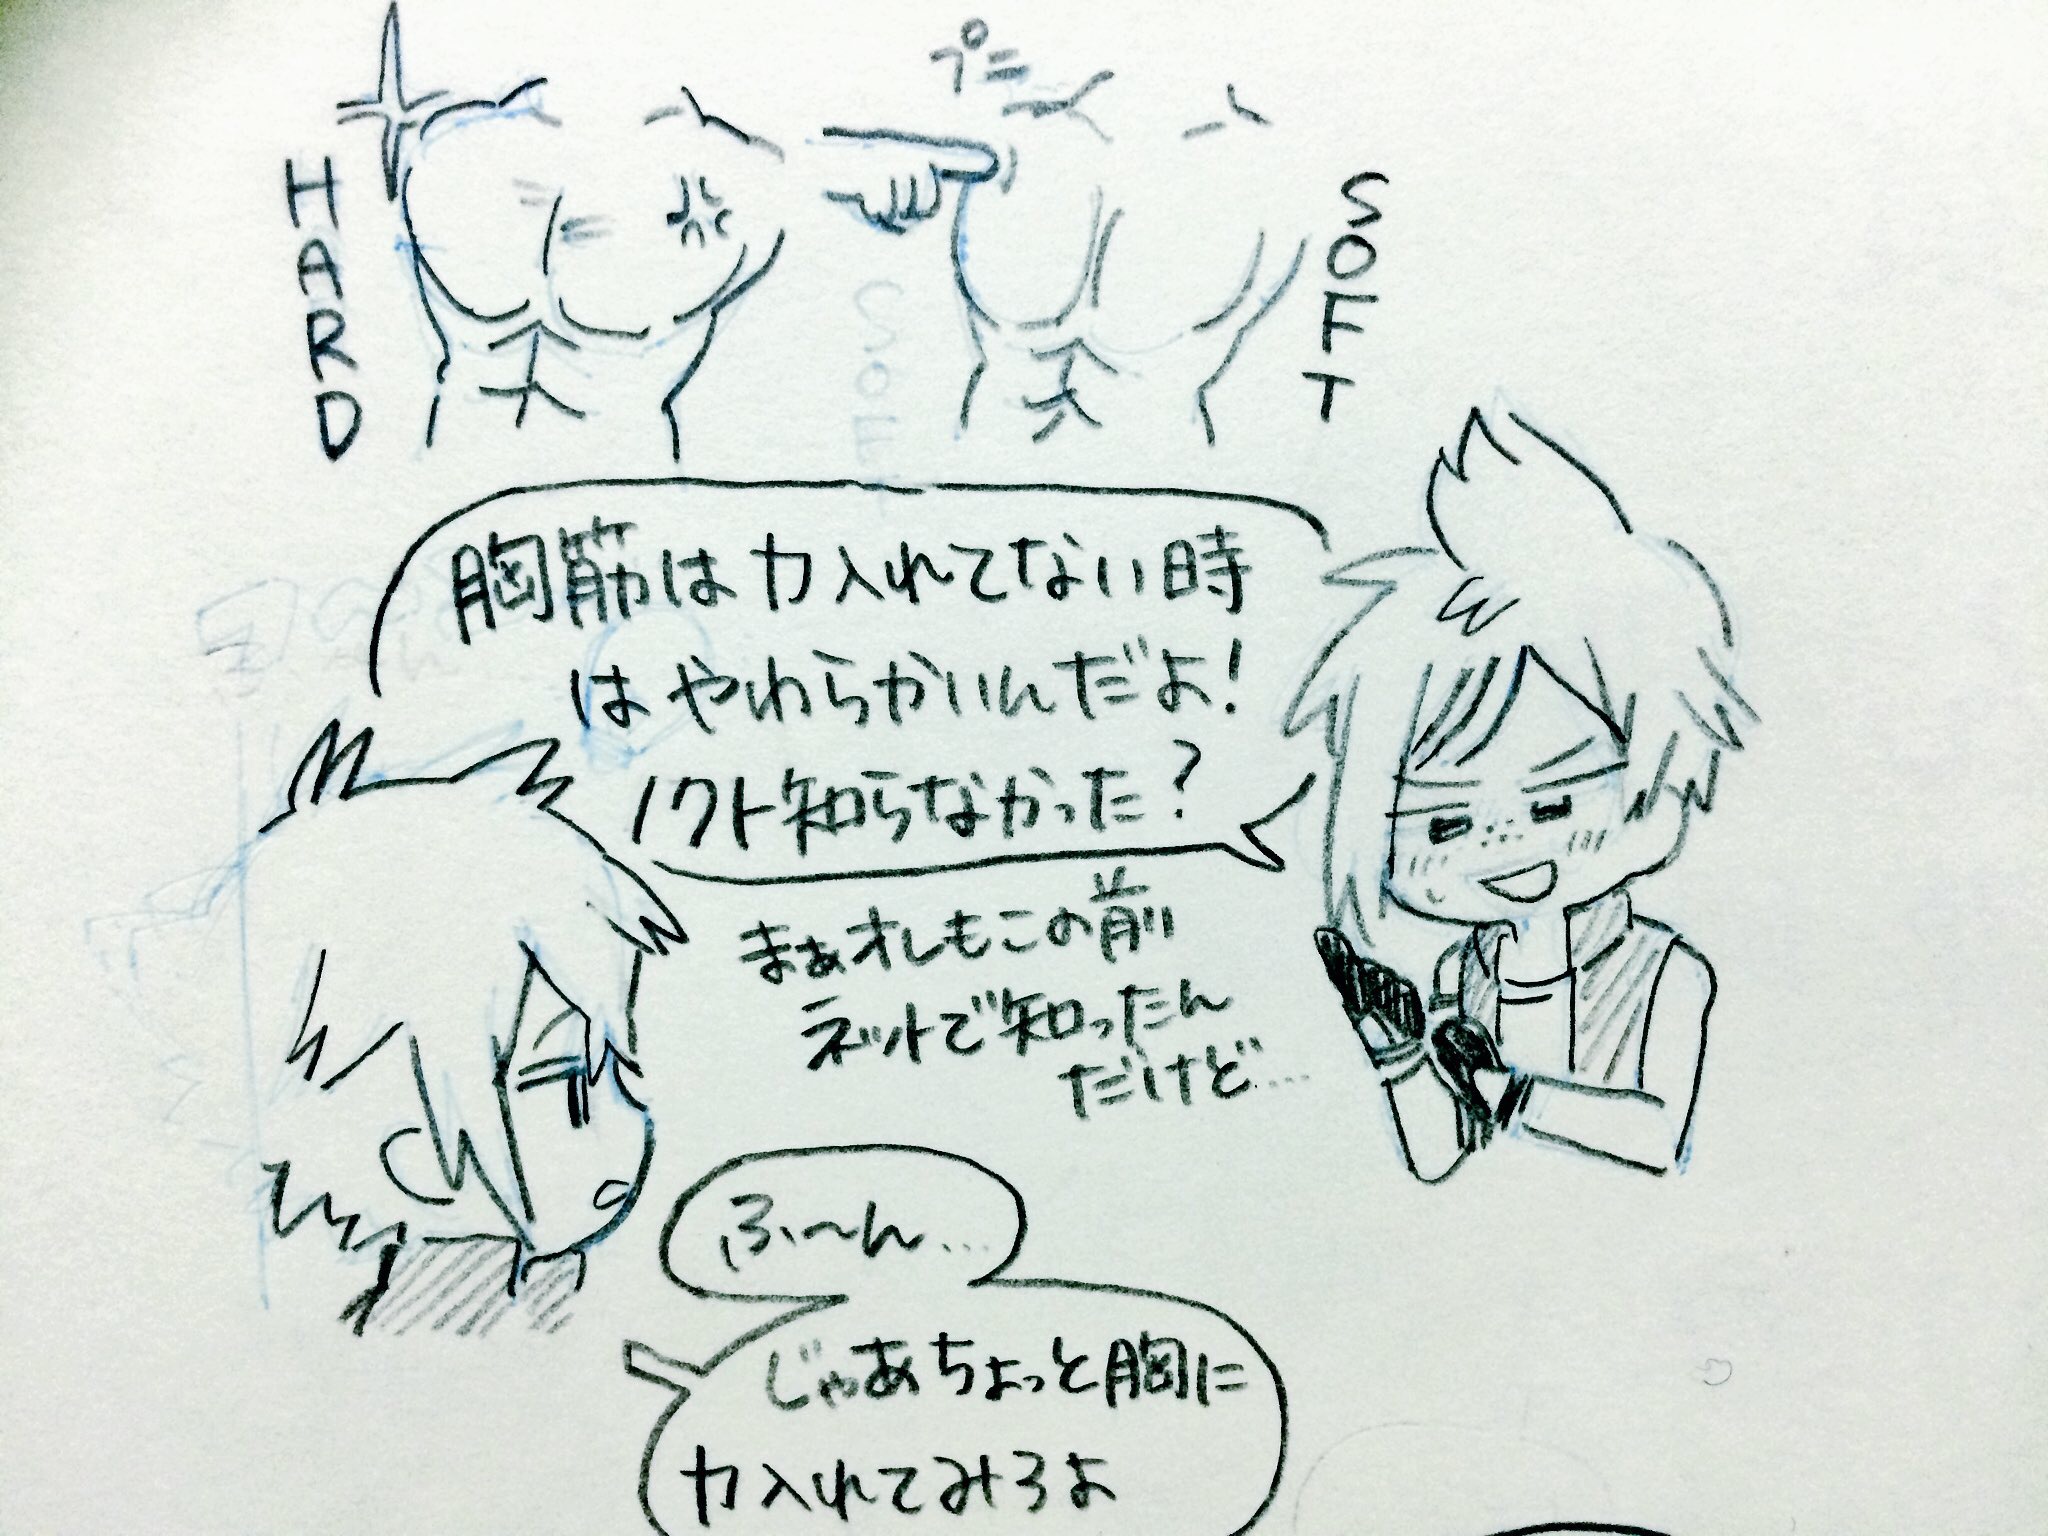 HARD
プニ
SOFT
胸筋は力入れてない時
はやわらかいんだよ!
ノクト知らなかった?
まぁオレもこの前
ネットで知ったん
だけど…
ふ〜ん…
じゃあちょっと胸に
力入れてみろよ